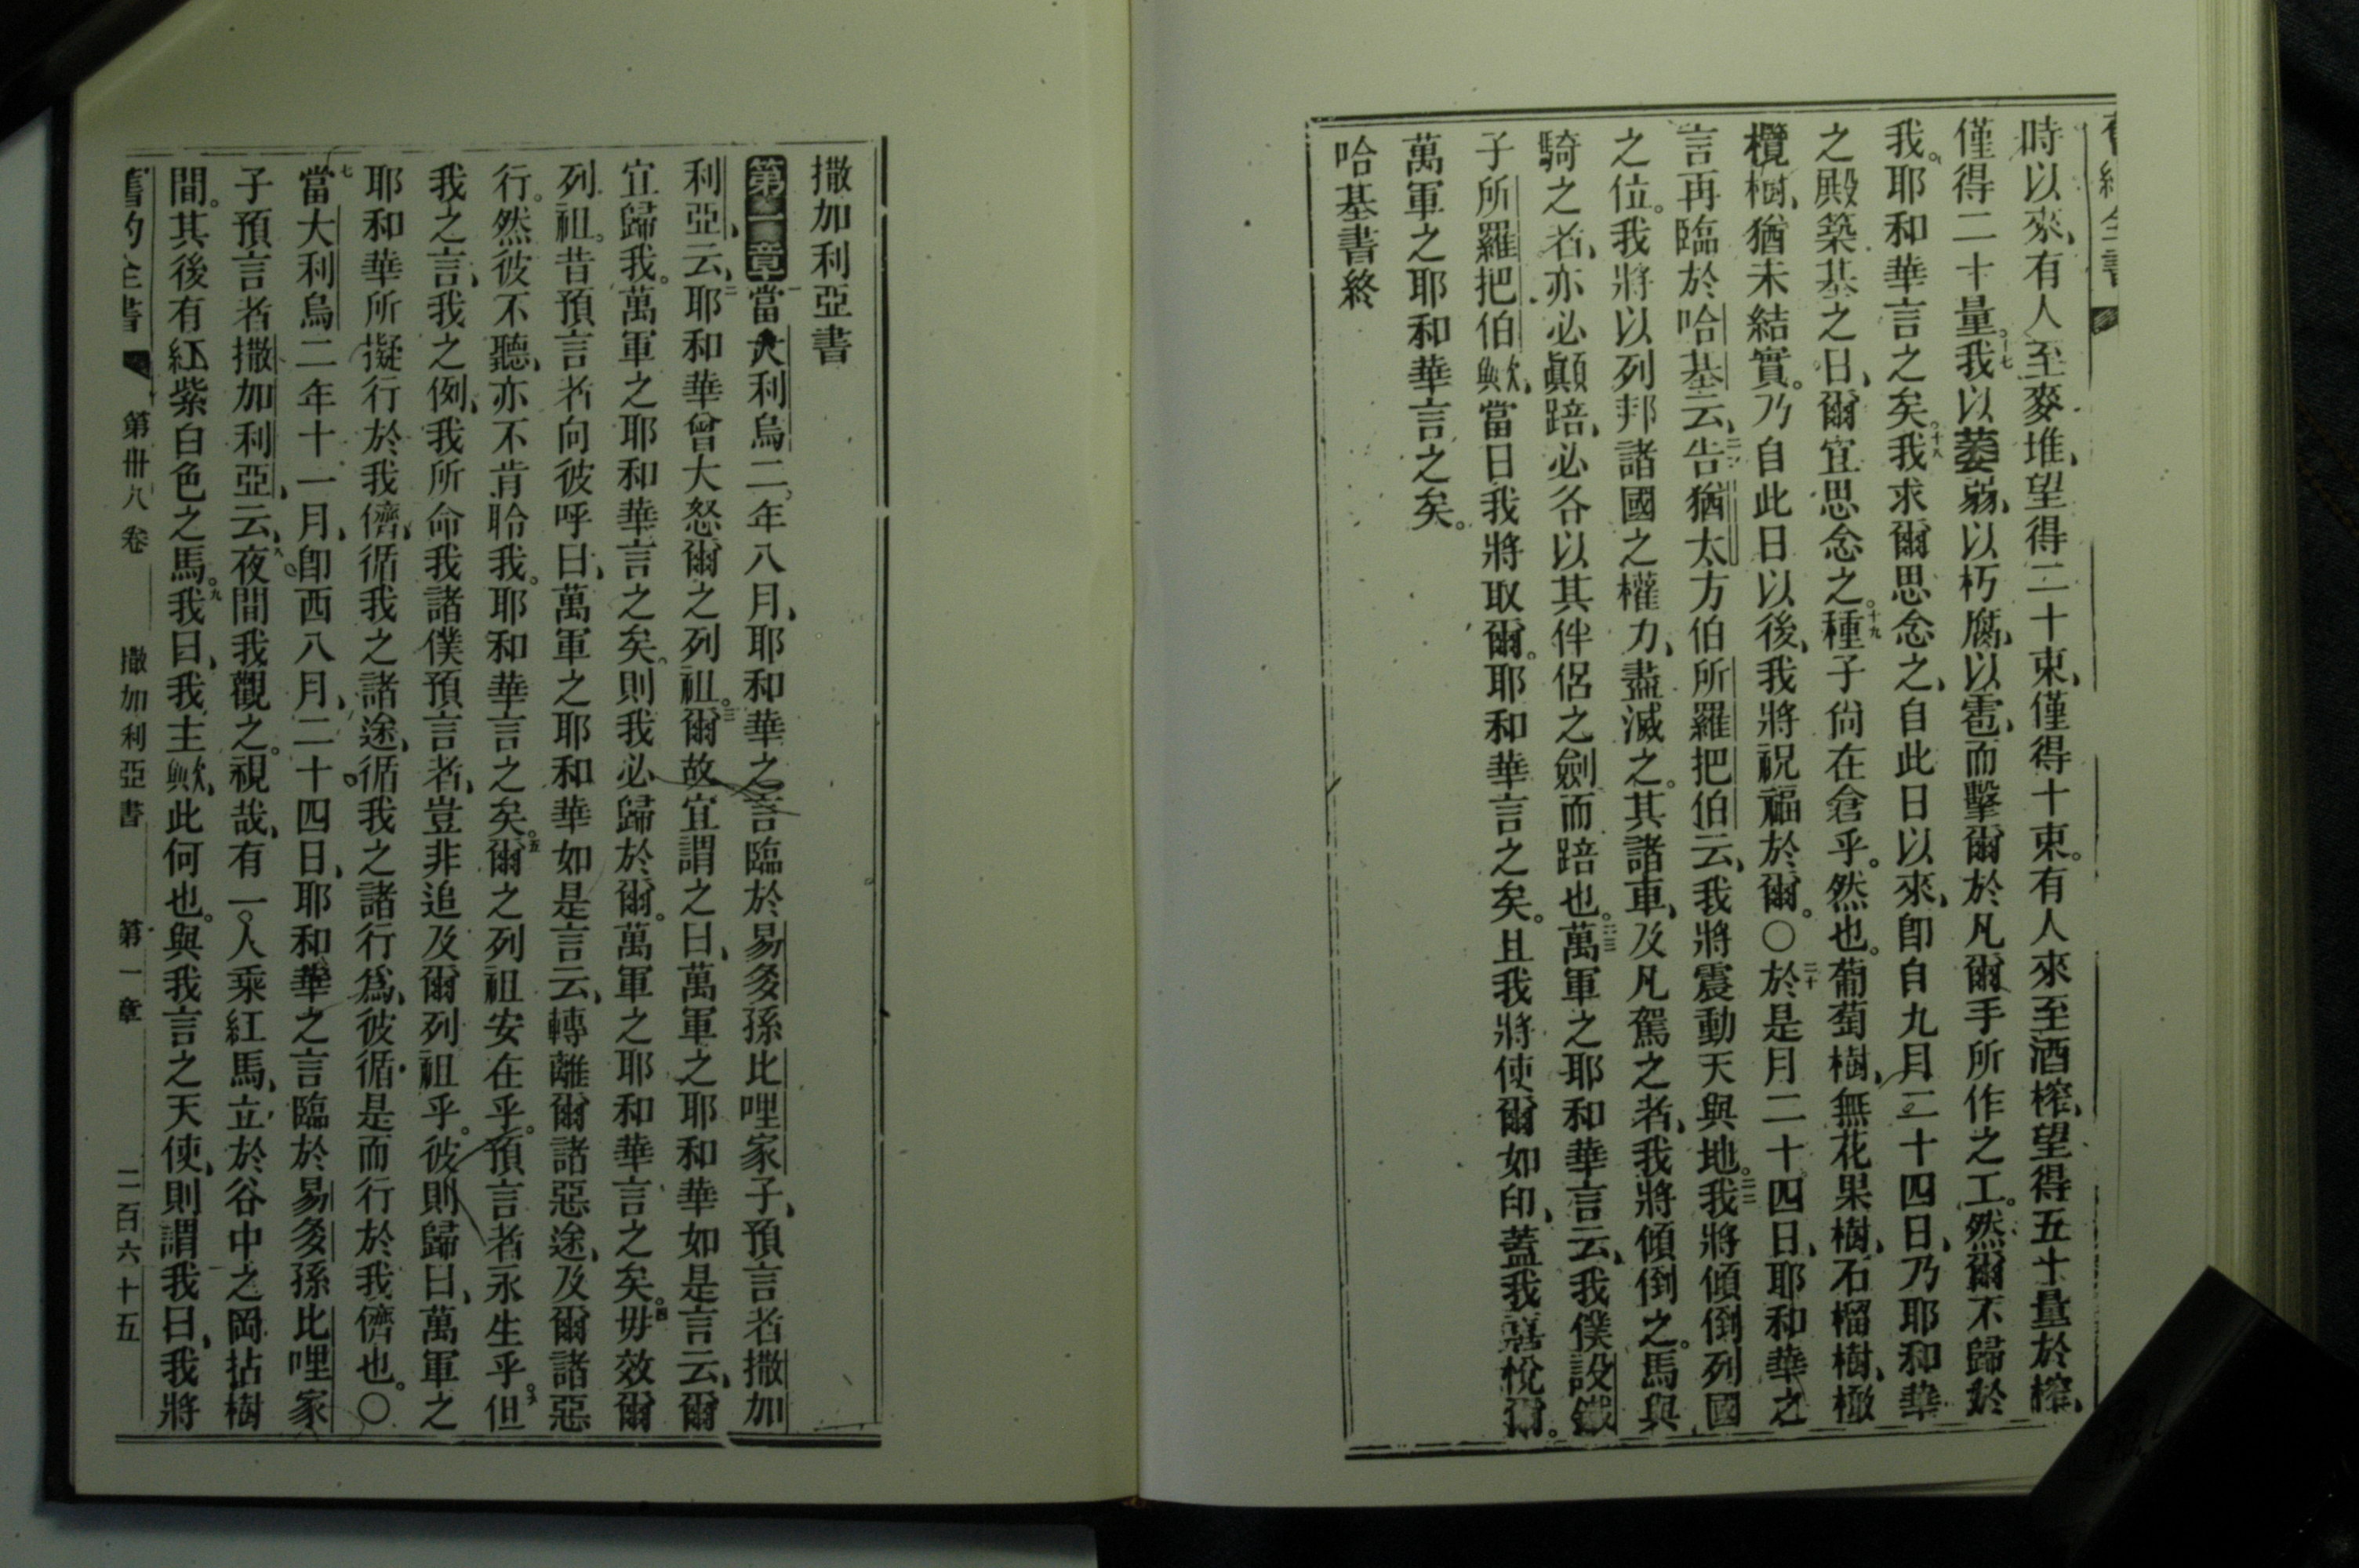 時以來、有人至麥堆、望得二十束、僅得十束。有人來至酒榨、望得五十量於榨、
僅得二十量。十七我以萎弱、以朽腐、以雹、而擊爾於凡爾手所作之工。然爾不歸於
我。耶和華言之矣。十八我求爾思念之、自此日以來、卽自九月二十四日、乃耶和華
之殿築基之日、爾宜思念之。十九種子尙在倉乎。然也。葡萄樹、無花果樹、石榴樹、橄
欖樹、猶未結實。乃自此日以後、我將祝福於爾。〇二十於是月二十四日、耶和華之
言再臨於哈基云、告猶太方伯所羅把伯云、我將震動天與地。二二我將傾倒列國
之位。我將以列邦諸國之權力、盡滅之。其諸車、及凡駕之者、我將傾倒之。馬與
騎之者、亦必顚踣、必各以其伴侶之劍而踣也。二三萬軍之耶和華言云、我僕設鐵
子所羅把伯歟、當日我將取爾。耶和華言之矣。且我將使爾如印、蓋我喜悅爾。
萬軍之耶和華言之矣。
哈基書終
撒加利亞書
第一章一當大利烏二年八月、耶和華之言臨於易多孫比哩家子、預言者撒加
利亞云、二耶和華曾大怒爾之列祖。三爾故宜謂之曰、萬軍之耶和華如是言云、爾
宜歸我。萬軍之耶和華言之矣。則我必歸於爾。萬軍之耶和華言之矣。四毋效爾
列祖。昔預言者向彼呼曰、萬軍之耶和華如是言云、轉離爾諸惡途、及爾諸惡
行。然彼不聽、亦不肯聆我。耶和華言之矣。五爾之列祖安在乎。預言者永生乎。六但
我之言、我之例、我所命我諸僕預言者、豈非追及爾列祖乎。彼則歸曰、萬軍之
耶和華所擬行於我儕、循我之諸途、循我之諸行爲、彼循是而行於我儕也。〇
七當大利烏二年十一月、卽西八月、二十四日、耶和華之言臨於易多孫比哩家
子預言者撒加利亞云、八夜間我觀之。視哉、有一人乘紅馬、立於谷中之岡拈樹
間。其後有紅紫白色之馬。九我曰、我主歟、此何也。與我言之天使、則謂我曰、我將
舊約全書 第卅八卷 撒加利亞書 第一章 二百六十五